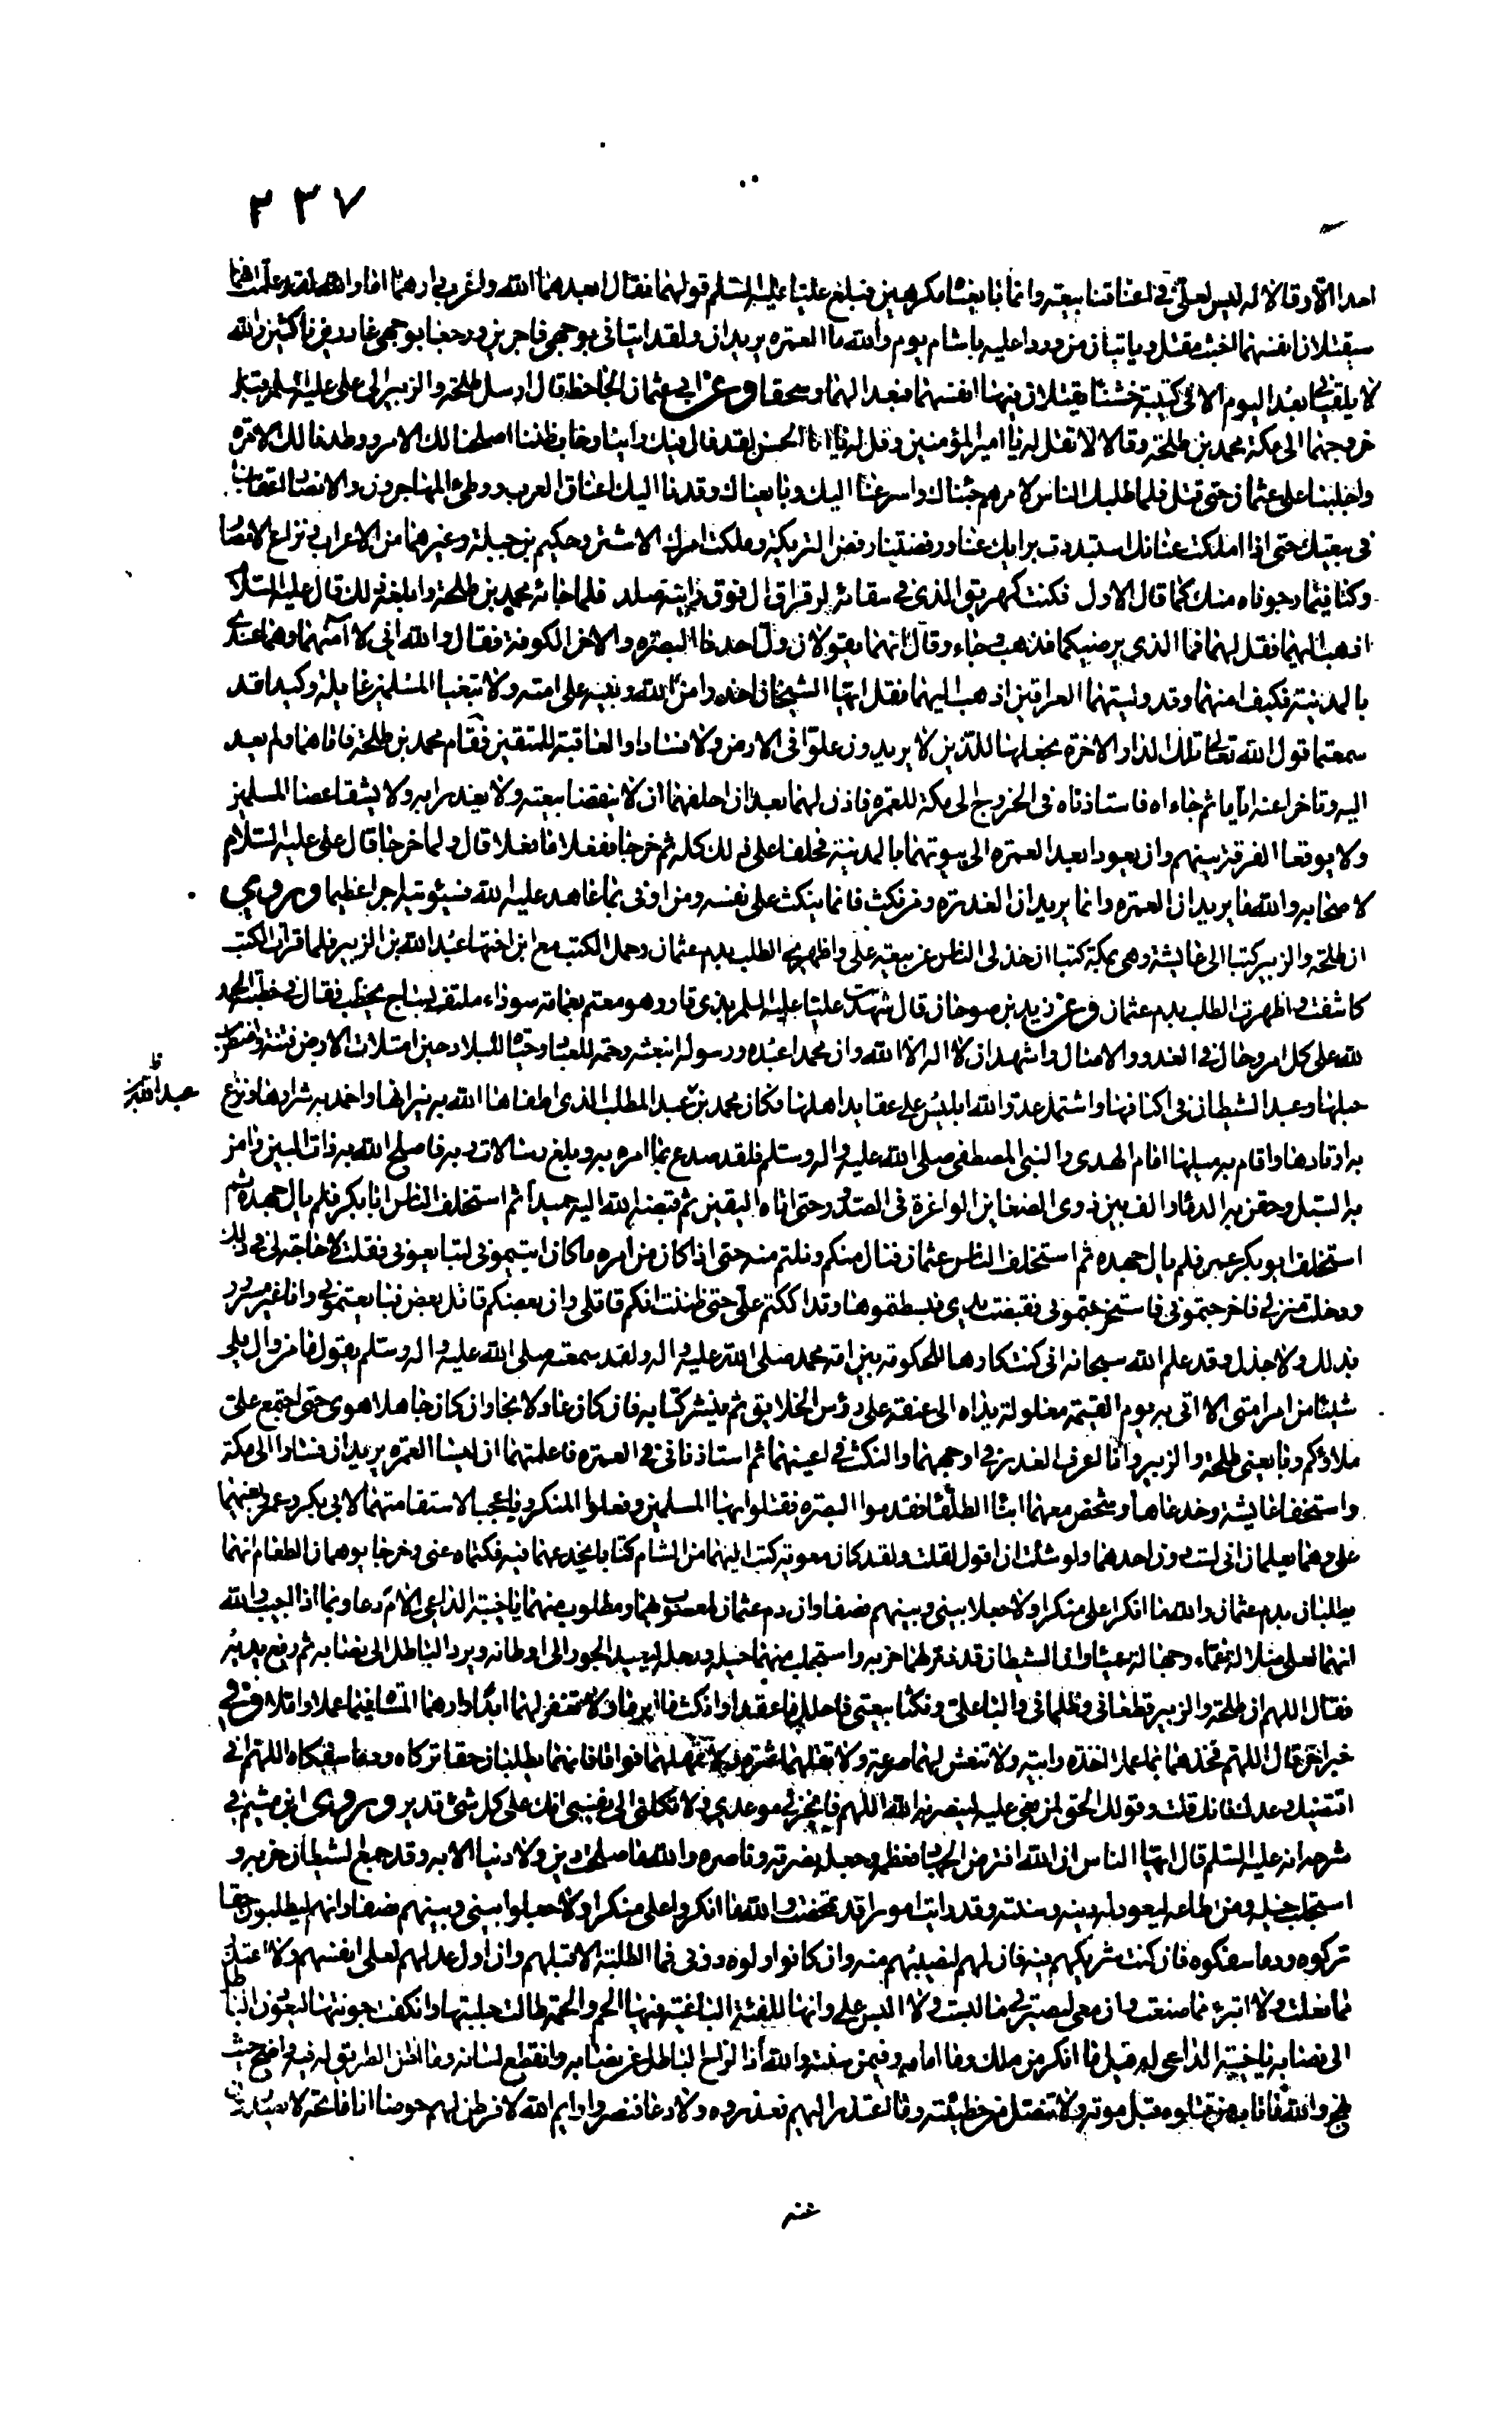 ٢٣٧
احدا الا وقالا له ليس لعلي في اعناقنا بيعة وانما بايعناه مكرهين فبلغ عليا عليه السلم قولهما فقال ابعدهما الله واغرب دارهما اما والله لقد علمت انهما
سيقتلان انفسهما اخبث مقتل وياتيان من وردا عليه باشام يوم والله ما العمرة يريدان ولقد اتياني بوجهي فاجرين ورجعا بوجهي غادرين ناكثين والله
لا يلقياني بعد اليوم الا في كتيبة خشناء يقتلان فيها انفسهما فبعدا لهما وسحقا وعن ابي عثمان الجاحظ قال ارسل طلحة والزبير الى علي عليه السلم قبل
خروجهما الى مكة محمد بن طلحة وقالا لا تقل له يا امير المؤمنين وقل له يا ابا الحسن لقد فال فيك راينا وخاب ظننا اصلحنا لك الامر ووطدنا لك الامرة
واجلبنا على عثمان حتى قتل فلما طلبك الناس لامرهم جئناك واسرعنا اليك وبايعناك وقدنا اليك اعناق العرب ووطئ المهاجرون والانصار اعقابنا
في بيعتك حتى اذا ملكت عنانك استبددت برايك عنا ورفضتنا رفض التريكة وملكت امرك الاشتر وحكيم بن جبلة وغيرهما من الاعراب ونزاع الامصار
وكنا فيما رجوناه منك كما قال الاول فكنت كهريق الذي في سقائه لرقراق ال فوق رابية صلد فلما جائه محمد بن طلحة وابلغه ذلك قال عليه السلام
اذهب اليهما فقل لهما فما الذي يرضيكما فذهب وجاء وقال انهما يقولان ول احدنا البصره والاخر الكوفة فقال والله اني لا آمنهما وهما عندي
بالمدينة فكيف امنهما وقد وليتهما العراقين اذهب اليهما فقل ايها الشيخان احذرا من الله ونبيه على امته ولا تبغيا المسلمين غايلة وكيدا وقد
سمعتما قول الله تعالى تلك الدار الاخرة نجعلها للذين لا يريدون علوا في الارض ولا فسادا والعاقبة للمتقين فقام محمد بن طلحة فاتاهما ولم يعد
اليه وتاخرا عنه اياما ثم جاءاه فاستاذناه في الخروج الى مكة للعمرة فاذن لهما بعد ان احلفهما ان لا ينقضا بيعته ولا يغدرا به ولا يشقا عصا المسلمين
ولا يوقعا الفرقة بينهم وان يعودا بعد العمرة الى بيوتهما بالمدينة فحلفا على ذلك كله ثم خرجا ففعلا ما فعلا قال ولما خرجا قال علي عليه السلام
لاصحابه والله ما يريدان العمرة وانما يريدان الغدرة ومن نكث فانما ينكث على نفسه ومن اوفى بما عاهد عليه الله فسيؤتيه اجرا عظيما وروي
ان طلحة والزبير كتبا الى عايشة وهي بمكة كتبا ان خذلي الناس عن بيعة علي واظهري الطلب بدم عثمان وحمل الكتب مع ابن اختها عبد الله بن الزبير فلما قرات الكتب
كاشفت واظهرت الطلب بدم عثمان وعن زيد بن صوحان قال شهدت عليا عليه السلم بذي قار وهو معتم بعمامة سوداء ملتف بساج يخطب فقال في خطبته الحمد
لله على كل امر وحال في الغدو والاصال واشهد ان لا اله الا الله وان محمدا عبده ورسوله ابتعثه رحمة للعباد وحياة للبلاد حين امتلات الارض فتنة واضطرب
حبلها وعبد الشيطان في اكنافها واشتمل عدو الله ابليس على عقايد اهلها فكان محمد بن عبد المطلب الذي اطفا الله به نيرانها واخمد به شرارها ونزع
ظ
عبد الله بن
به اوتادها واقام به ميلها امام الهدى والنبي المصطفى صلى الله عليه واله وسلم فلقد صدع بما امر به وبلغ رسالات ربه فاصلح الله به ذات البين وامن
به السبل وحقن به الدماء والف بين ذوي الضغاين الواغرة في الصدور حتى اتاه اليقين ثم قبضه الله اليه حميدا ثم استخلف الناس ابا بكر فلم يال جهده ثم
استخلف ابو بكر عمر فلم يال جهده ثم استخلف الناس عثمان فنال منكم ونلتم منه حتى اذا كان من امره ما كان اتيتموني لتبايعوني فقلت لا حاجة لي في ذلك
ودخلت منزلي فاخرجتموني فاستخرجتموني فقبضت يدي فبسطتموها وتداككتم علي حتى ظننت انكم قاتلي وان بعضكم قاتل بعض فبايعتموني وانا غير مسرور
بذلك ولا جذل وقد علم الله سبحانه اني كنت كارها للحكومة بين امة محمد صلى الله عليه واله ولقد سمعته صلى الله عليه واله وسلم يقول ما من وال يلي
شيئا من امر امتي الا اتي به يوم القيمة مغلولة يداه الى عنقه على رؤس الخلايق ثم ينشر كتابه فان كان عادلا نجا وان كان جاهلا هوى حتى اجتمع علي
ملاؤكم وبايعني طلحة والزبير وانا اعرف الغدر في اوجههما والنكث في اعينهما ثم استاذناني في العمرة فاعلمتهما ان ليسا العمرة يريدان فسارا الى مكة
واستخفا عايشة وخدعاها وشخص معهما ابناء الطلقاء فقدموا البصرة فقتلوا بها المسلمين وفعلوا المنكر ويا عجبا لاستقامتهما لابي بكر وعمر وبغيهما
علي وهما يعلمان اني لست دون احدهما ولو شئت ان اقول لقلت ولقد كان معوية كتب اليهما من الشام كتابا يخدعهما فيه فكتماه عني وخرجا يوهمان الطغام انهما
يطلبان بدم عثمان والله ما انكرا علي منكرا ولا جعلا بيني وبينهم نصفا وان دم عثمان لمعصوب بهما ومطلوب منهما يا خيبة الداعي الام دعا وبماذا اجيب والله
انهما لعلى ضلالة صماء وجهالة عمياء وان الشيطان قد ذمر لهما حزبه واستجلب منهما خيله ورجله ليعيد الجور الى اوطانه ويرد الباطل الى نصابه ثم رفع يديه
فقال اللهم ان طلحة والزبير قطعاني وظلماني والبا علي ونكثا بيعتي فاحلل ما عقدا وانكث ما ابرما ولا تغفر لهما ابدا وارهما المساءة فيما عملا واملا وفي
خبر اخر قال اللهم فخذهما بما عملا اخذة رابية ولا تنعش لهما صرعة ولا تقلهما عثرة ولا تمهلهما فواقا فانهما يطلبان حقا تركاه ودما سفكاه اللهم اني
اقتضيك وعدك فانك قلت وقولك الحق لمن بغي عليه لينصرنه الله اللهم فانجز لي موعدي ولا تكلني الى نفسي انك على كل شئ قدير وروى ابن ميثم في
شرحه انه عليه السلم قال ايها الناس ان الله افترض الجهاد فعظمه وجعله نصرته وناصره والله ما صلحت دين ولا دنيا الا به وقد جمع الشيطان حزبه و
استجلب خيله ومن اطاعه ليعود له دينه وسنته وقد رايت امورا قد تمخضت والله ما انكروا علي منكرا ولا جعلوا بيني وبينهم نصفا وانهم ليطلبون حقا
تركوه ودما سفكوه فان كنت شريكهم فيه فان لهم لنصيبهم منه وان كانوا ولوه دوني فما الطلبة الا قبلهم وان اول عدلهم لعلى انفسهم ولا اعتذر
مما فعلت ولا اتبرء مما صنعت وان معي لبصيرتي ما لبست ولا لبس علي وانها للفئة الباغية فيها الحم والحمة طالت جلبتها وانكفت جونتها ليعودن الباطل
الى نصابه يا خيبة الداعي لو قيل ما انكر من ذلك وما امامه وفيمن سنته والله اذا لزاح الباطل عن نصابه وانقطع لسانه وما اظن الطريق له فيه واضح حيث
نهج والله ما تاب من قتلوه قبل موته ولا تنصل من خطيئته وما اعتذر اليهم فعذروه ولا دعا فنصروه وايم الله لافرطن لهم حوضا انا ماتحه لا يصدرون
عنه